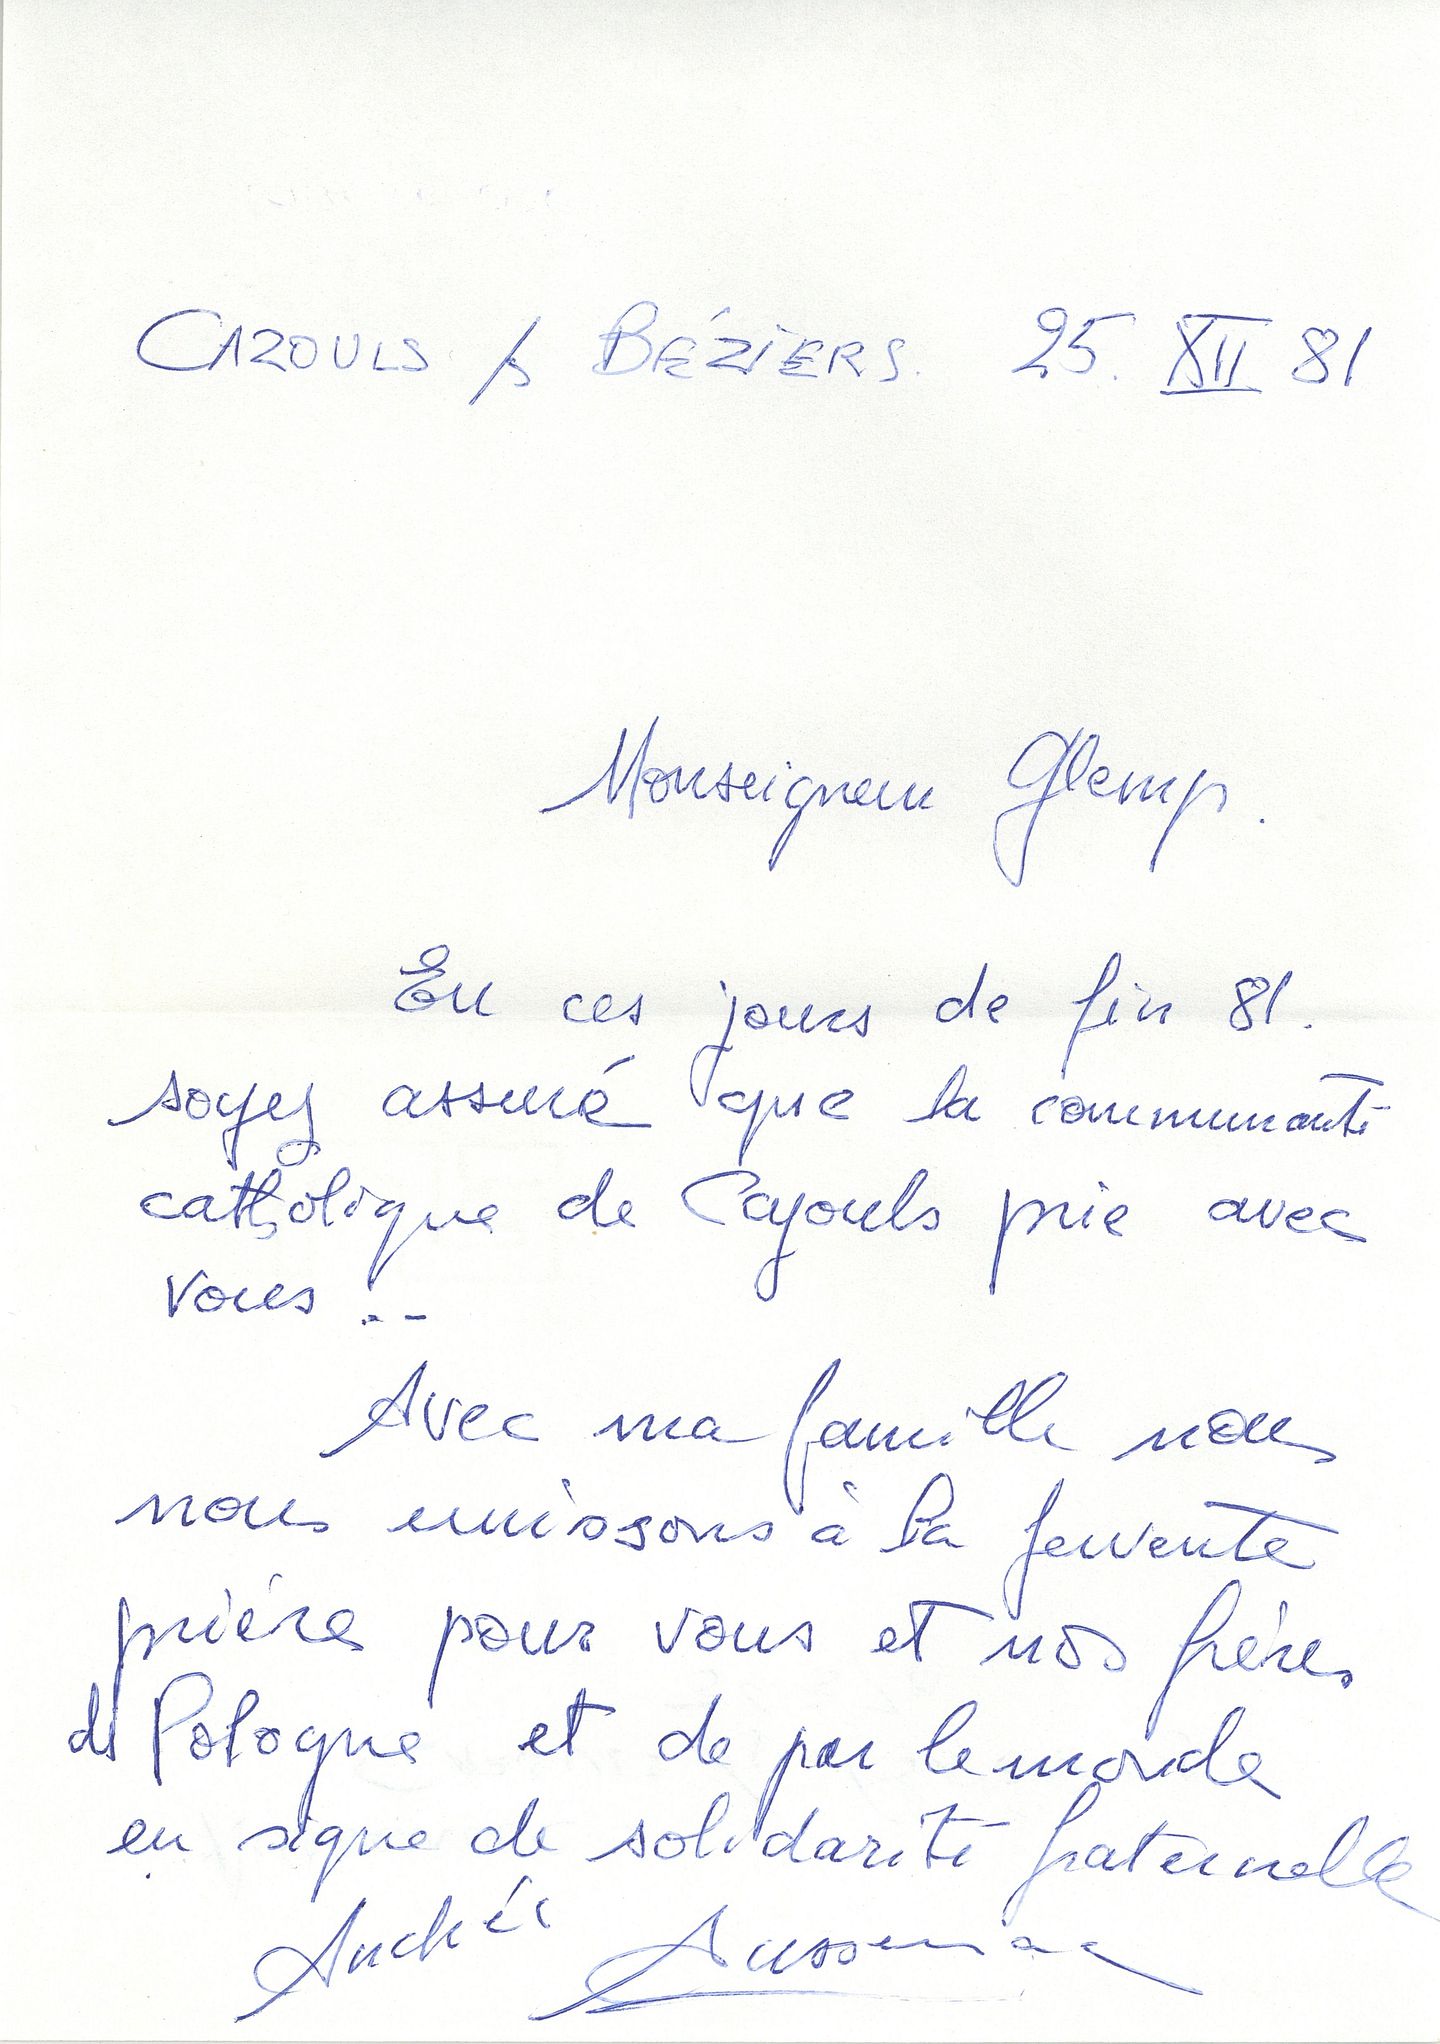 CAZOULS / s BÉZIERS. 25. XII 81
Monseigneur Glemp.
En ces jours de fin 81.
soyez assuré que la communauté
catholique de Cazouls prie avec
vous ...
Avec ma famille nous
nous unissons à la fervente
prière pour vous et nos frères
de Pologne et de par le monde
en signe de solidarité fraternelle
Andrée Aussenac